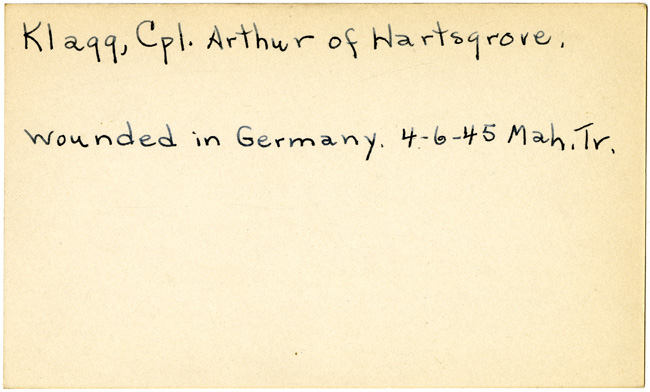 Klagg, Cpl. Arthur of Hartsgrove.
wounded in Germany. 4-6-45 Mah. Tr.